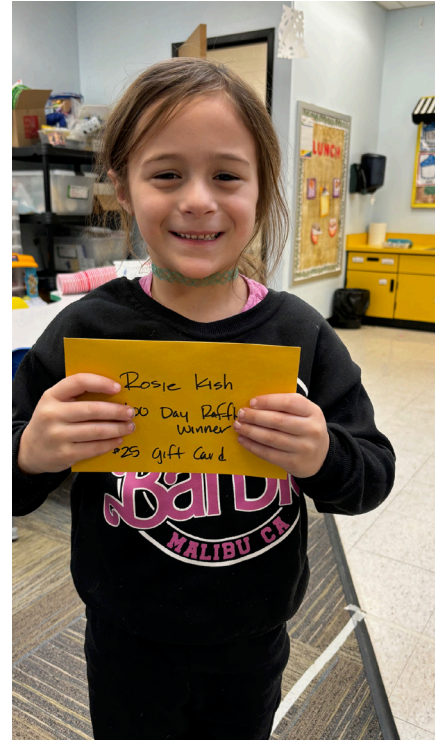 LUNCH
Rosie Kish
00 Day Raff
Winner
$25 Gift Card
Barbi
MALIBU CA